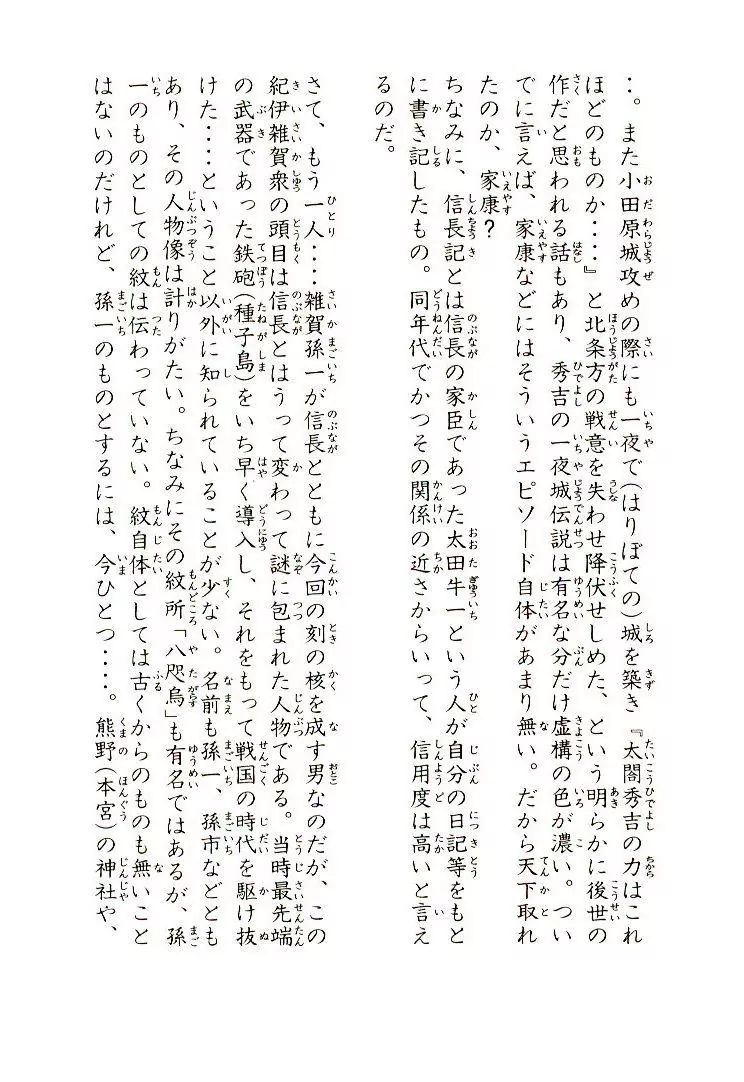 ‥。また小田原城攻めの際にも一夜で(はりぼての)城を築き『太閤秀吉の力はこれ
ほどのものか‥‥』と北条方の戦意を失わせ降伏せしめた、という明らかに後世の
作だと思われる話もあり、秀吉の一夜城伝説は有名な分だけ虚構の色が濃い。つい
でに言えば、家康などにはそういうエピソード自体があまり無い。だから天下取れ
たのか、家康?
ちなみに、信長記とは信長の家臣であった太田牛一という人が自分の日記等をもと
に書き記したもの。同年代でかつその関係の近さからいって、信用度は高いと言え
るのだ。
さて、もう一人‥‥雑賀孫一が信長とともに今回の刻の核を成す男なのだが、この
紀伊雑賀衆の頭目は信長とはうって変わって謎に包まれた人物である。当時最先端
の武器であった鉄砲(種子島)をいち早く導入し、それをもって戦国の時代を駆け抜
けた‥‥ということ以外に知られていることが少ない。名前も孫一、孫市などとも
あり、その人物像は計りがたい。ちなみにその紋所「八咫烏」も有名ではあるが、孫
一のものとしての紋は伝わっていない。紋自体としては古くからのものも無いこと
はないのだけれど、孫一のものとするには、今ひとつ‥‥。熊野(本宮)の神社や、